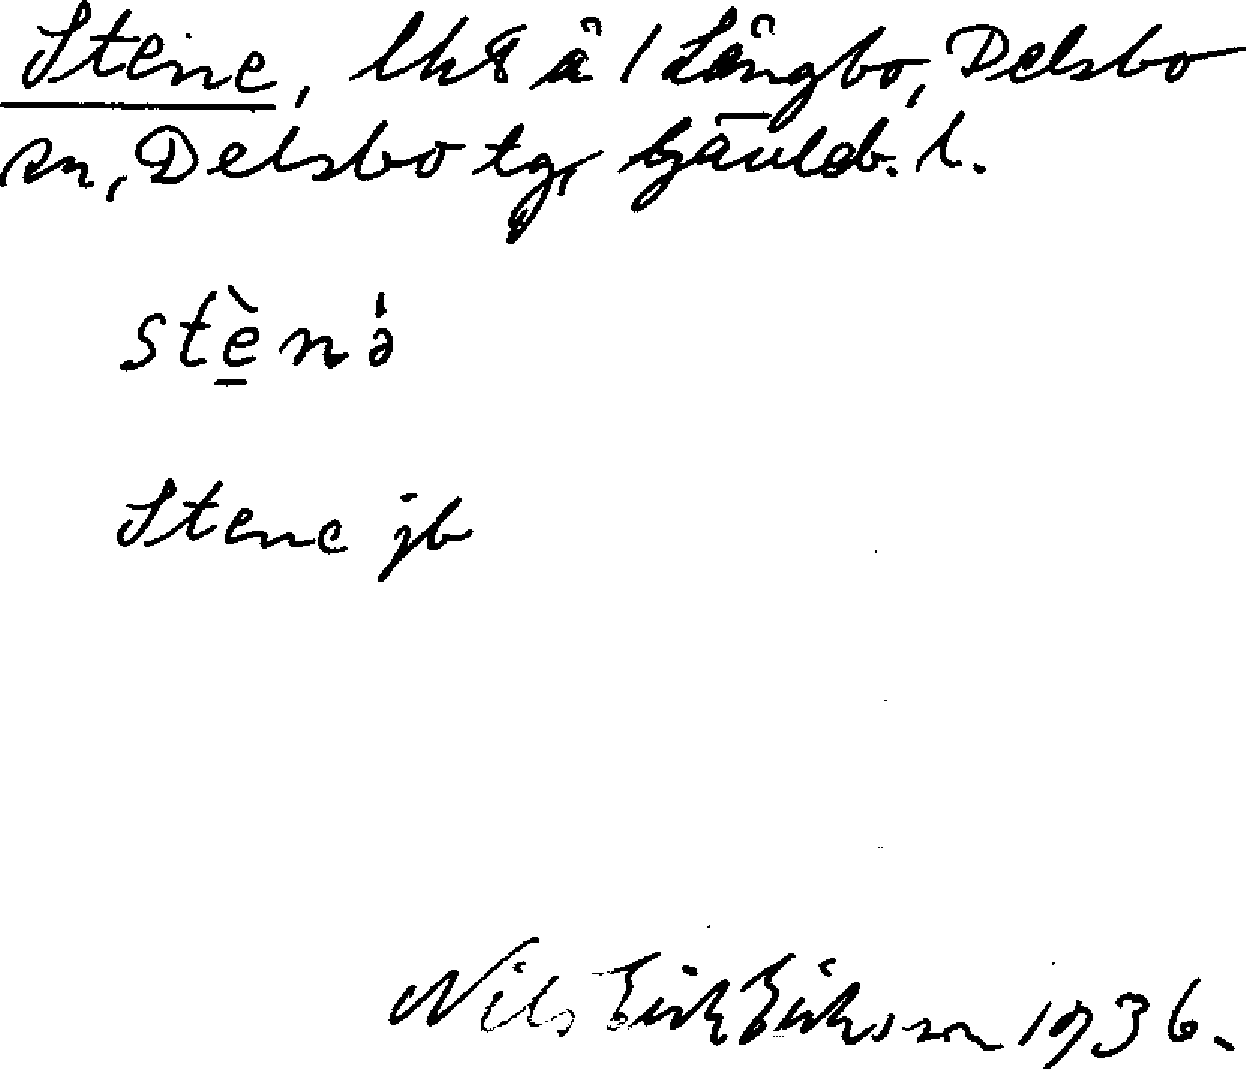 Stene, lht å / Långbo, Delsbo
sn, Delsbo tg, Gävleb. l.
stè̱nə̀
Stene jb
Nils Erik Eriksson 1936.